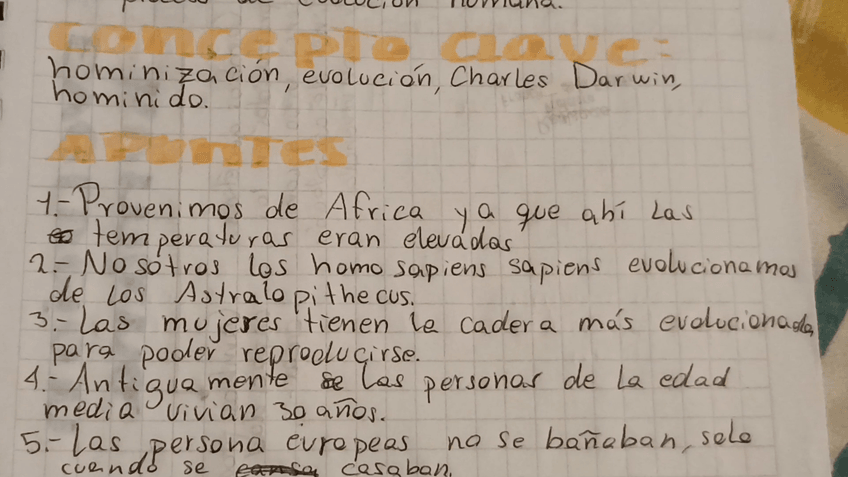 proceso de evolución humana.
Concepto clave:
hominización, evolución, Charles Darwin,
hominido.
APUNTES
1.- Provenimos de Africa ya que ahí las
temperaturas eran elevadas
2.- Nosotros los homo sapiens sapiens evolucionamos
de los Astralopithecus.
3.- Las mujeres tienen la cadera más evolucionada,
para poder reproducirse.
4.- Antiguamente las personas de la edad
media vivian 30 años.
5.- Las persona europeas no se bañaban, solo
cuando se casaban.